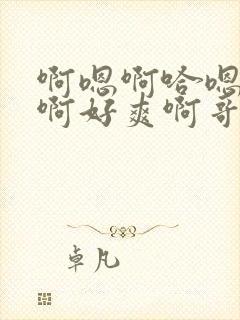 啊嗯啊哈嗯
啊好爽啊哥
卓凡